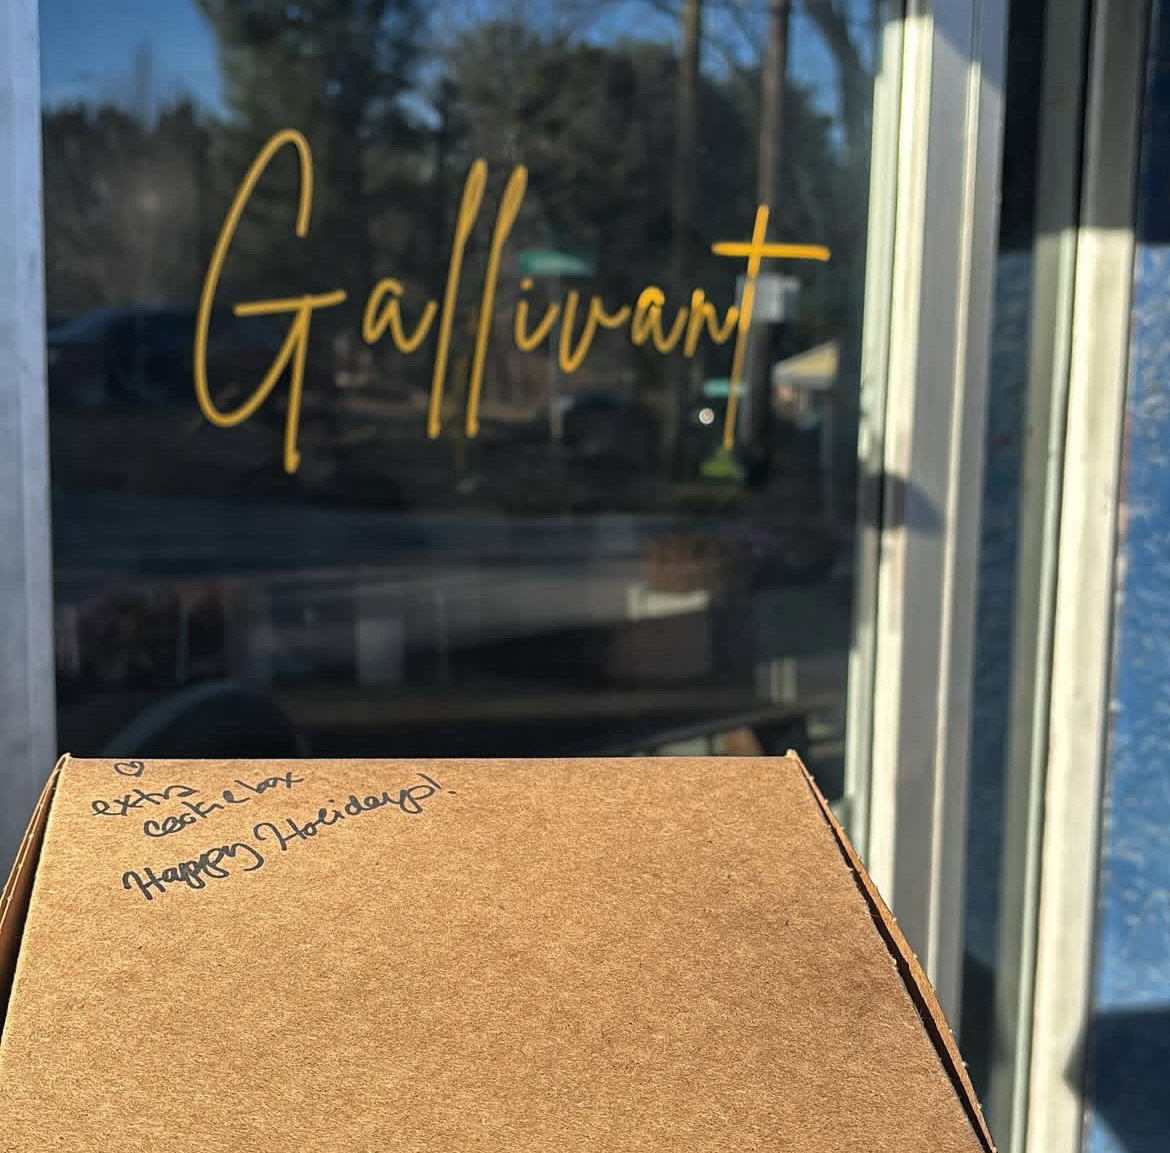 Gallivant
extra
cookie box
Happy Holidays!